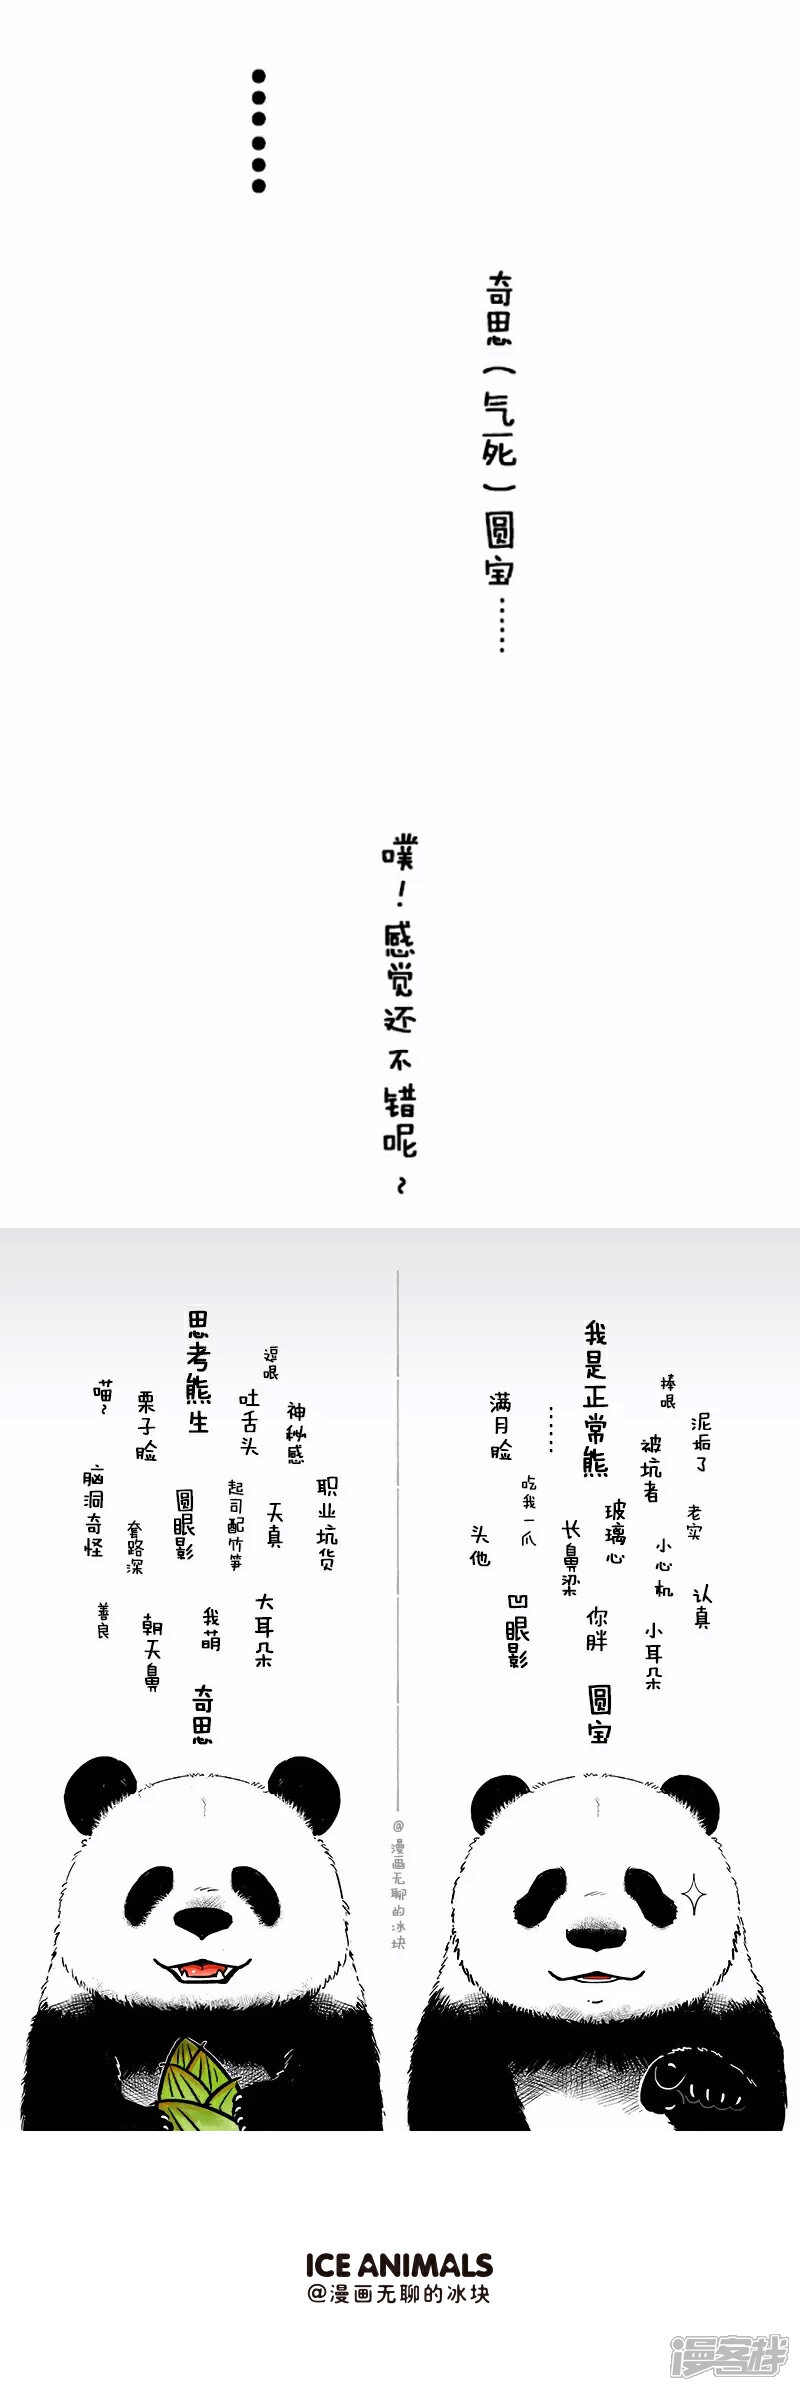 ……
奇思（气死）圆宝……
噗！感觉还不错呢~
思考熊生
逗哏
喵~
栗子脸
吐舌头
神秘感
脑洞奇怪
套路深
圆眼影
起司配竹笋
天真
职业坑货
善良
朝天鼻
我萌
大耳朵
奇思
我是正常熊
捧哏
满月脸
……
被坑者
泥垢了
头他
吃我一爪
长鼻梁
玻璃心
小心机
老实
认真
凹眼影
你胖
小耳朵
圆宝
@漫画无聊的冰块
ICE ANIMALS
@漫画无聊的冰块
漫客栈